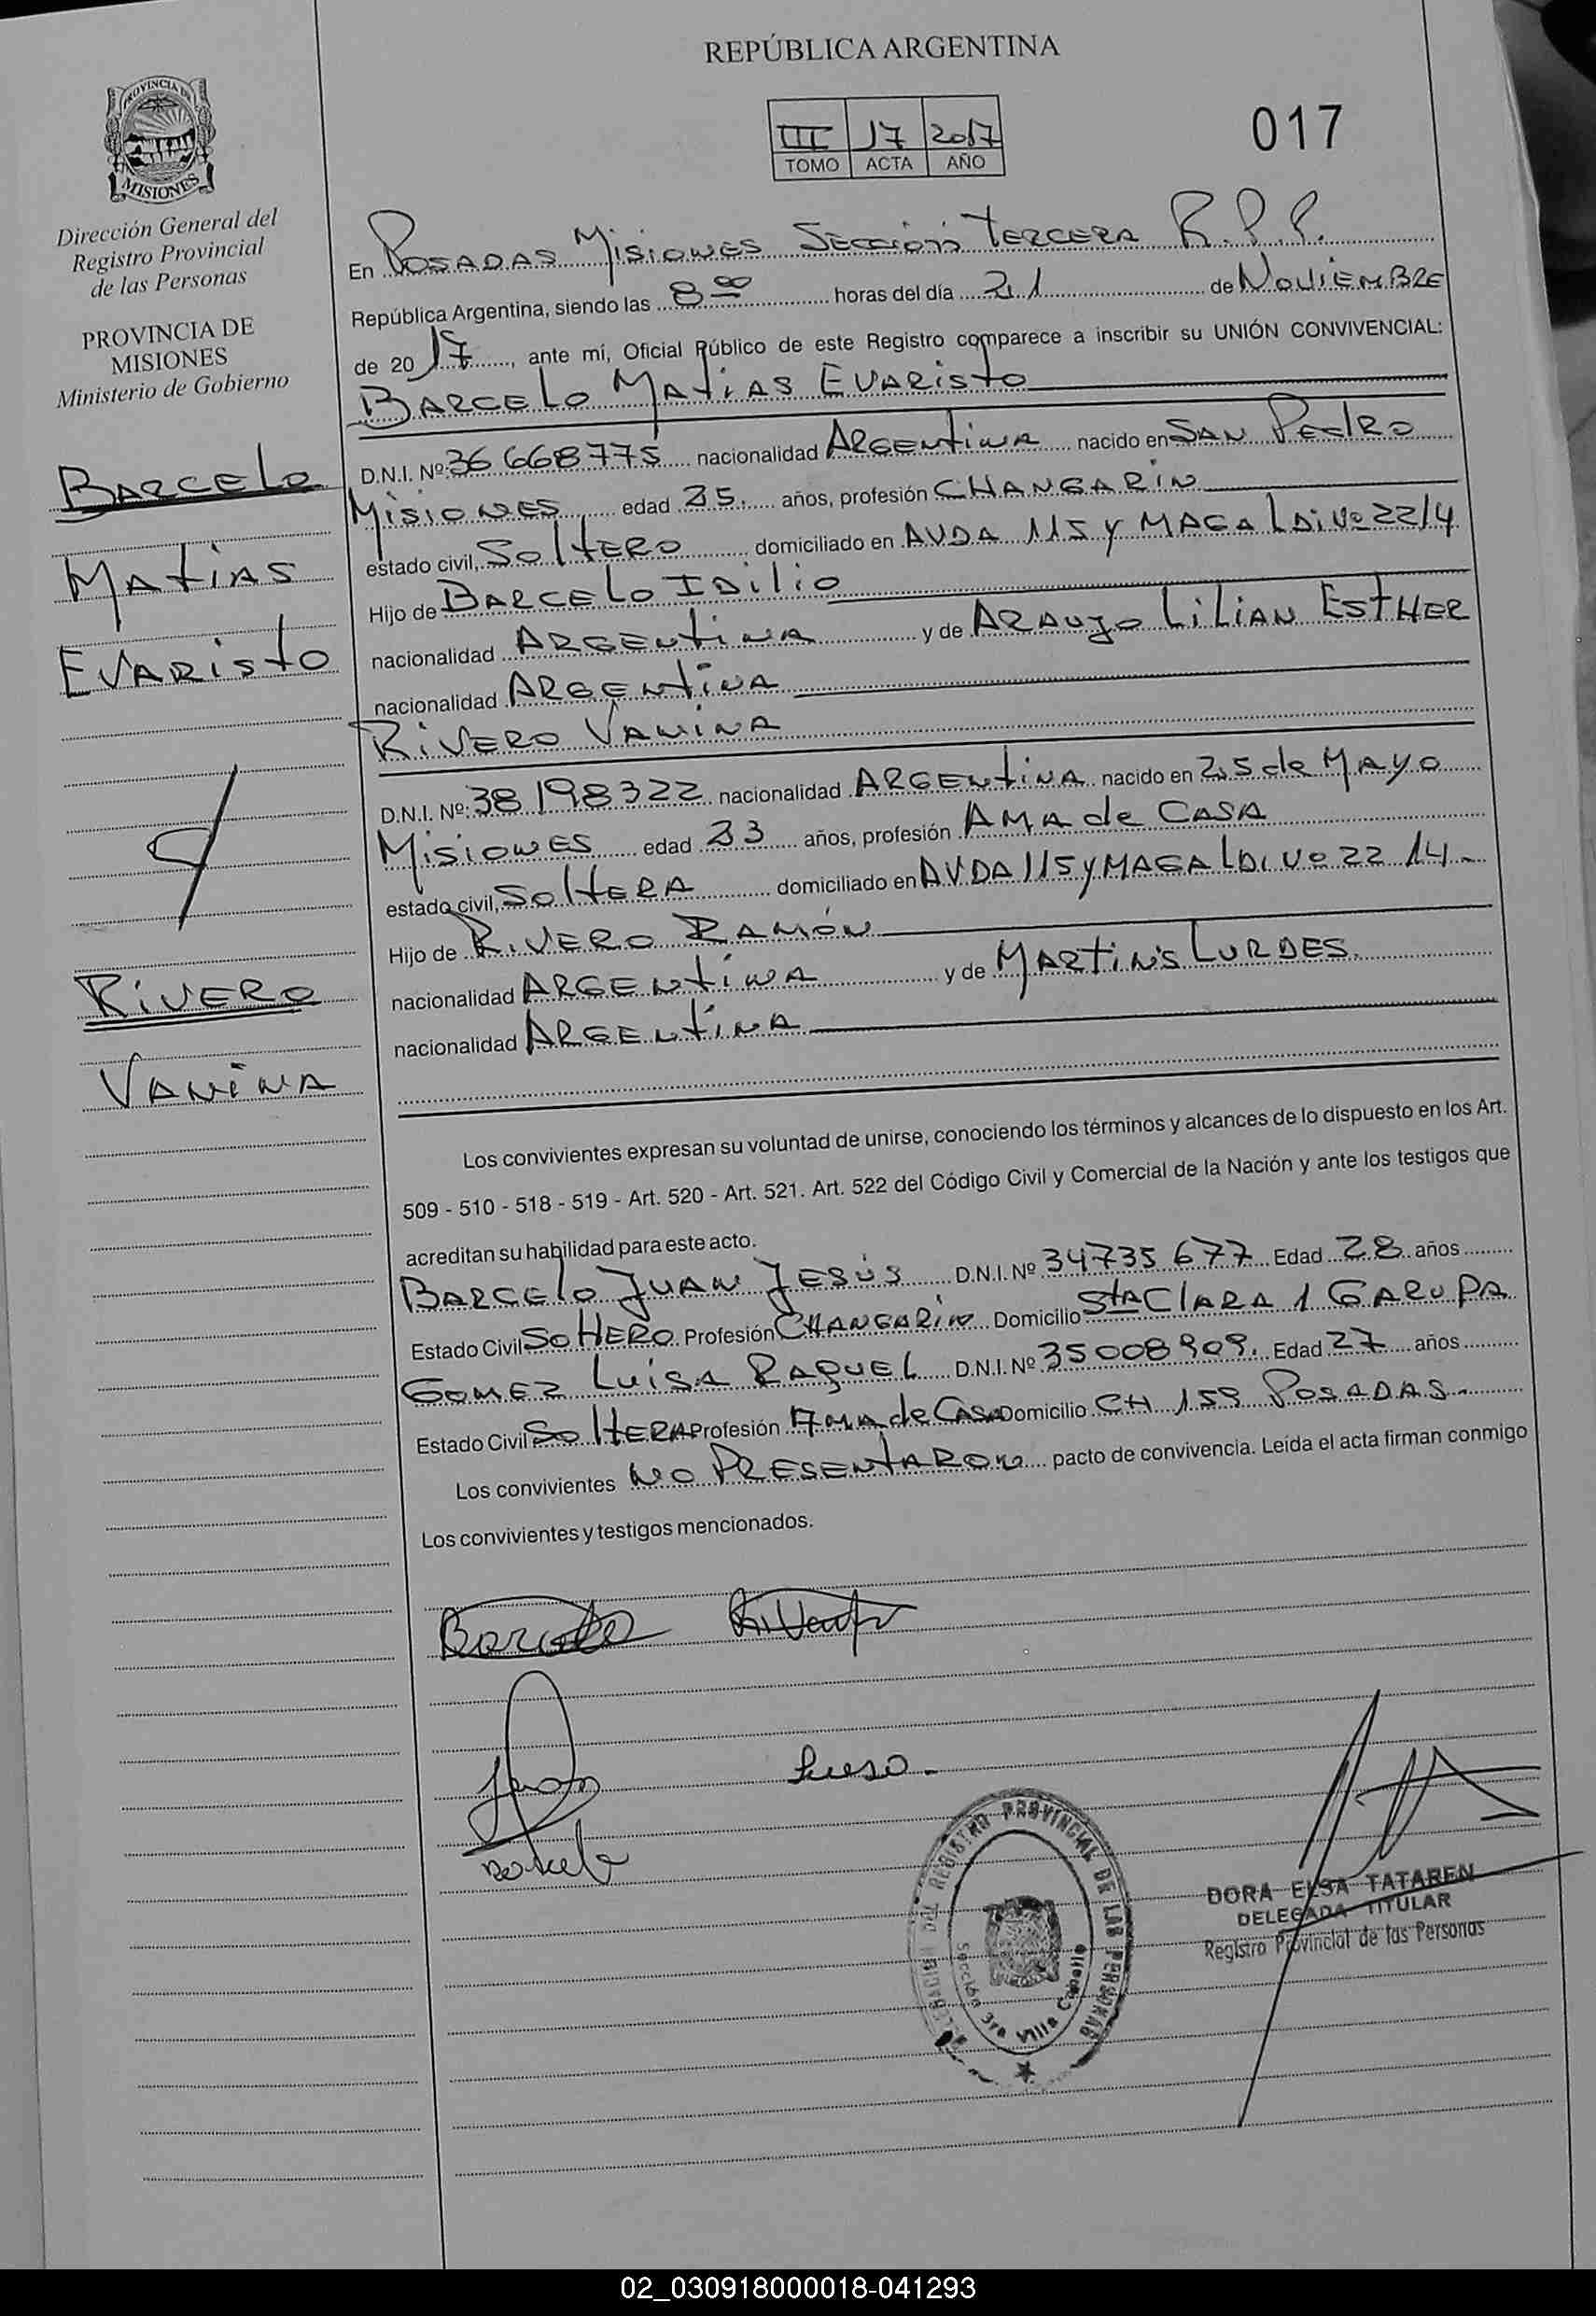 REPÚBLICA ARGENTINA
III 17 2017
TOMO ACTA AÑO
017
PROVINCIA DE
MISIONES
Dirección General del
Registro Provincial
de las Personas
PROVINCIA DE
MISIONES
Ministerio de Gobierno
BARCELO
MATIAS
EVARISTO
y
RIVERO
VANINA
En POSADAS MISIONES SECCIÓN TERCERA R.P.P.
República Argentina, siendo las 8 00 horas del día 21 de NOVIEMBRE
de 2017, ante mí, Oficial Público de este Registro comparece a inscribir su UNIÓN CONVIVENCIAL:
BARCELO MATIAS EVARISTO
D.N.I. Nº: 36 668775 nacionalidad ARGENTINA nacido en SAN PEDRO
MISIONES edad 25. años, profesión CHANGARIN
estado civil, SOLTERO domiciliado en AVDA 115 Y MAGALDI Nº 2214
Hijo de BARCELO IDILIO
nacionalidad ARGENTINA y de ARAUJO LILIAN ESTHER
nacionalidad ARGENTINA
RIVERO VANINA
D.N.I. Nº: 38198322 nacionalidad ARGENTINA nacido en 25 de MAYO
MISIONES edad 23 años, profesión AMA de CASA
estado civil, SOLTERA domiciliado en AVDA 115 y MAGALDI Nº 22 14-
Hijo de RIVERO RAMÓN
nacionalidad ARGENTINA y de MARTINS LURDES.
nacionalidad ARGENTINA
Los convivientes expresan su voluntad de unirse, conociendo los términos y alcances de lo dispuesto en los Art.
509 - 510 - 518 - 519 - Art. 520 - Art. 521. Art. 522 del Código Civil y Comercial de la Nación y ante los testigos que
acreditan su habilidad para este acto.
BARCELO JUAN JESÚS D.N.I. Nº 34735 677 Edad 28 años
Estado Civil SOLTERO Profesión CHANGARIN Domicilio Sta CLARA 1 GARUPA
GOMEZ LUISA RAQUEL D.N.I. Nº 35008909. Edad 27 años
Estado Civil SOLTERA Profesión AMA de CASA Domicilio CH 159 POSADAS.
Los convivientes NO PRESENTARON pacto de convivencia. Leída el acta firman conmigo
Los convivientes y testigos mencionados.
DELEGACION DEL REGISTRO PROVINCIAL DE LAS PERSONAS
Sección 3ra Villa Cabello
DORA ELSA TATAREN
DELEGADA TITULAR
Registro Provincial de las Personas
02_030918000018-041293